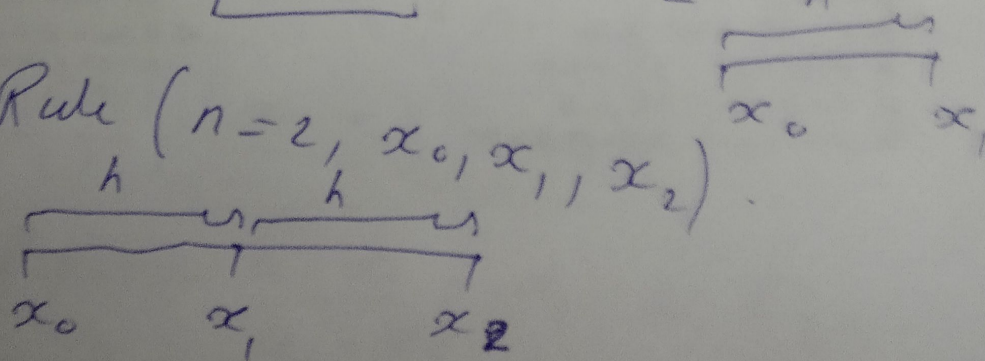 x₀ x₁
Rule (n=2, x₀, x₁, x₂).
h h
x₀ x₁ x₂